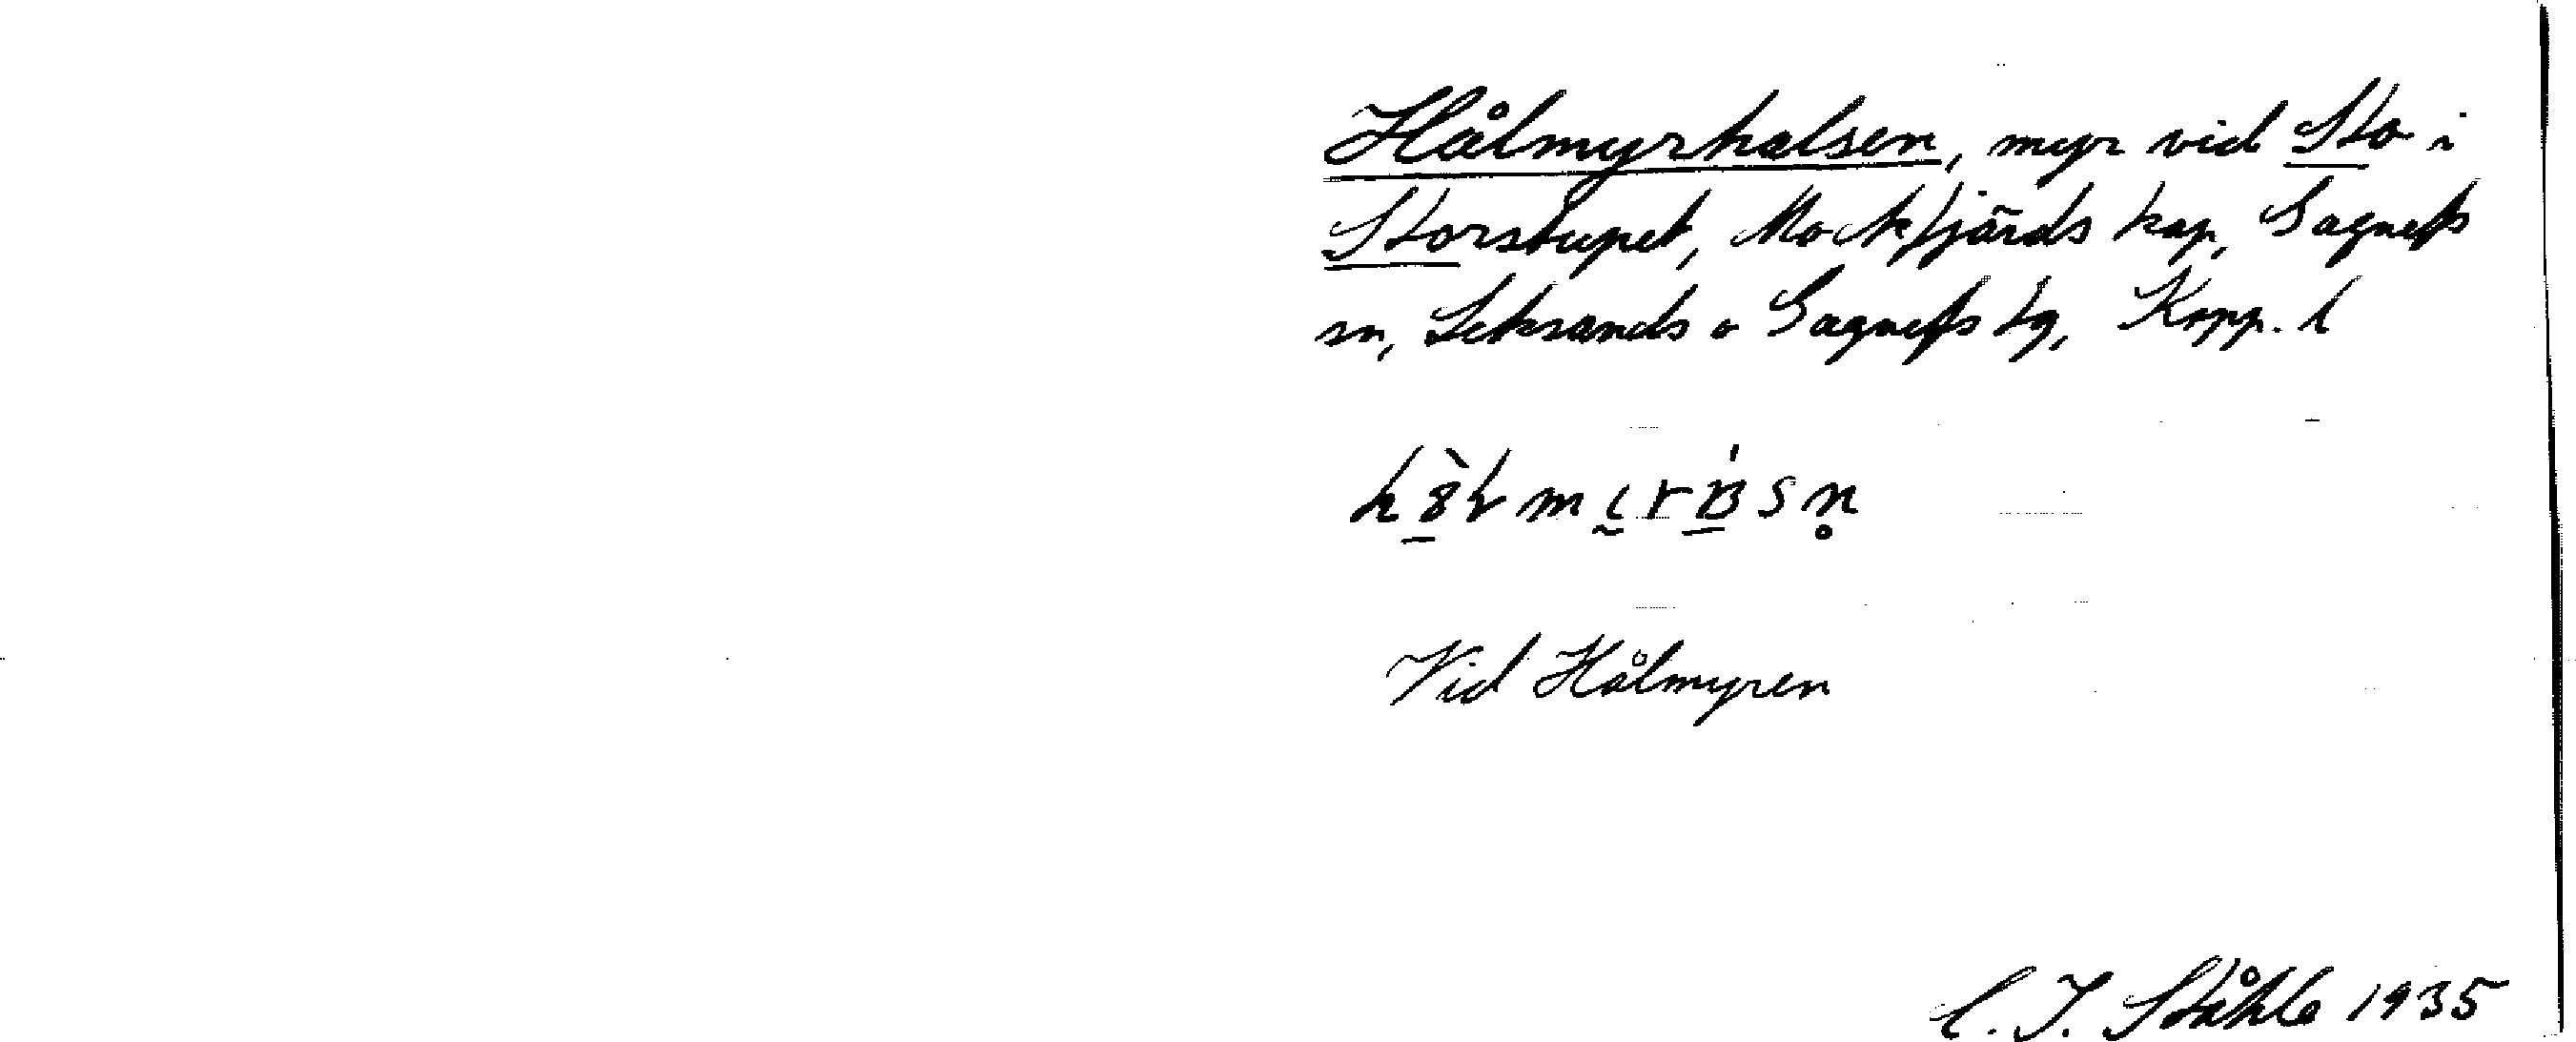 Hålmyrhalsen, myr vid Sto i
Storstupet, Mockfjärds kap, Gagnefs
sn, Leksands o Gagnefs tg, Kopp. l
Vid Hålmyren
C. I. Ståhle 1935